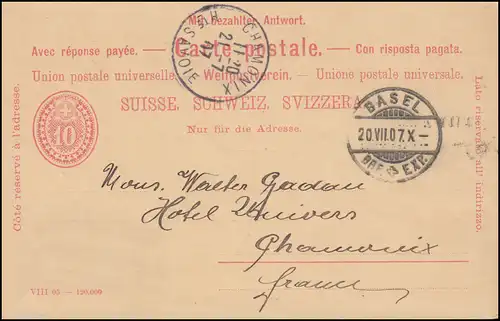 Mit bezahlter Antwort.
Avec réponse payée. — Carte postale. — Con risposta pagata.
Union postale universelle. — Weltpostverein. — Unione postale universale.
SUISSE. SCHWEIZ. SVIZZERA.
Nur für die Adresse.
Côté réservé à l'adresse.
10
Lato riservato all'indirizzo.
CHAMONIX
21-7
07
HTE SAVOIE
BASEL
20.VII.07.X-
BRF. EXP.
Mons. Walter
Hotel Univers
Chamonix
france
VIII 05 — 120,000